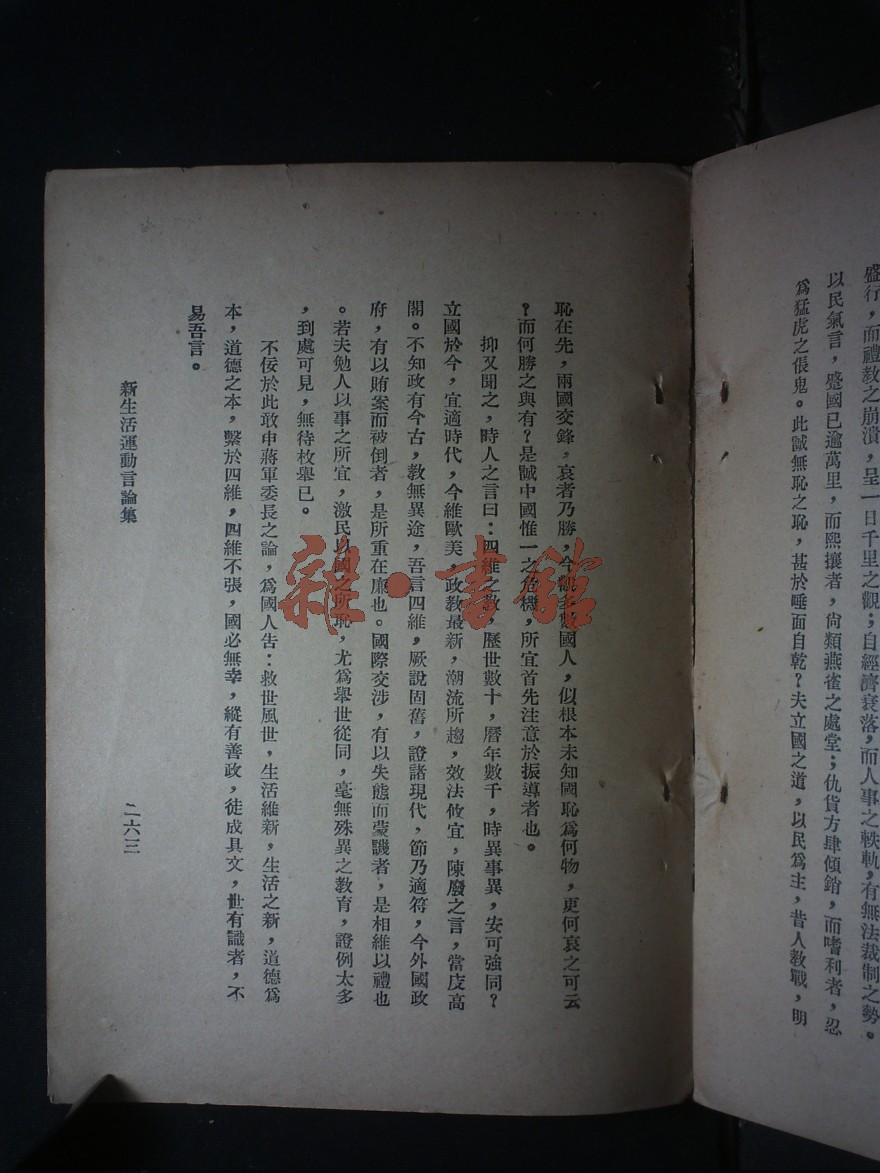 盛行，而禮教之崩潰，呈一日千里之觀；自經濟衰落，而人事之軼軌，有無法裁制之勢。
以民氣言，蹙國已逾萬里，而熙攘者，尙類燕雀之處堂；仇貨方肆傾銷，而嗜利者，忍
爲猛虎之倀鬼。此誠無恥之恥，甚於唾面自乾？夫立國之道，以民爲主，昔人敎戰，明
恥在先，兩國交鋒，哀者乃勝，今觀多數國人，似根本未知國恥爲何物，更何哀之可云
？而何勝之與有？是誠中國惟一之危機，所宜首先注意於振導者也。
抑又聞之，時人之言曰：四維之敎，歷世數十，曆年數千，時異事異，安可強同？
立國於今，宜適時代，今維歐美，政敎最新，潮流所趨，效法攸宜，陳廢之言，當庋高
閣。不知政有今古，敎無異途，吾言四維，厥說固舊，證諸現代，節乃適符，今外國政
府，有以賄案而被倒者，是所重在廉也。國際交涉，有以失態而蒙譏者，是相維以禮也
。若夫勉人以事之所宜，激民以國之所恥，尤爲舉世從同，毫無殊異之敎育，證例太多
，到處可見，無待枚舉已。
不佞於此敢申蔣軍委長之論，爲國人告：救世風世，生活維新，生活之新，道德爲
本，道德之本，繫於四維，四維不張，國必無幸，縱有善政，徒成具文，世有識者，不
易吾言。
新生活運動言論集
二六三
雜·書館